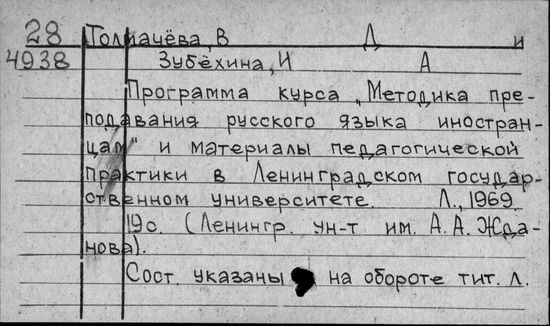 28 Толмачёва, В Д и
4938 Зубёхина, И А
Программа курса „Методика пре-
подавания русского языка иностран-
цам" и материалы педагогической
практики в Ленинградском государ-
ственном университете. Л., 1969
19с. (Ленингр. ун-т им. А. А. Жда-
нова).
Сост. указаны на обороте тит. л.